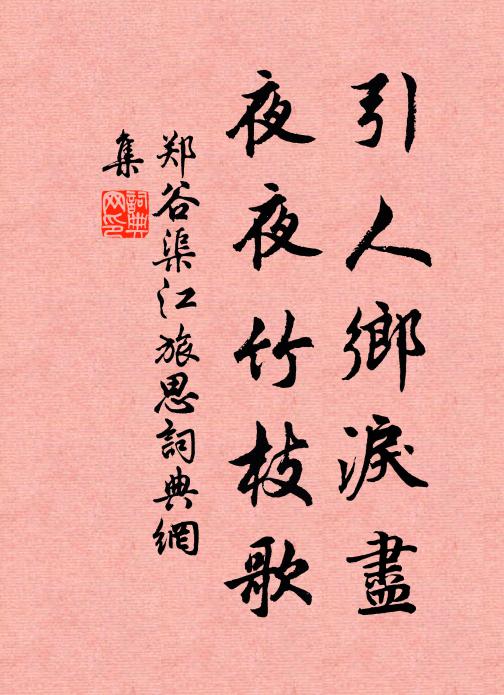 引人鄉淚盡
夜夜竹枝歌
郑谷渠江旅思詞典網
集
詞典
网印